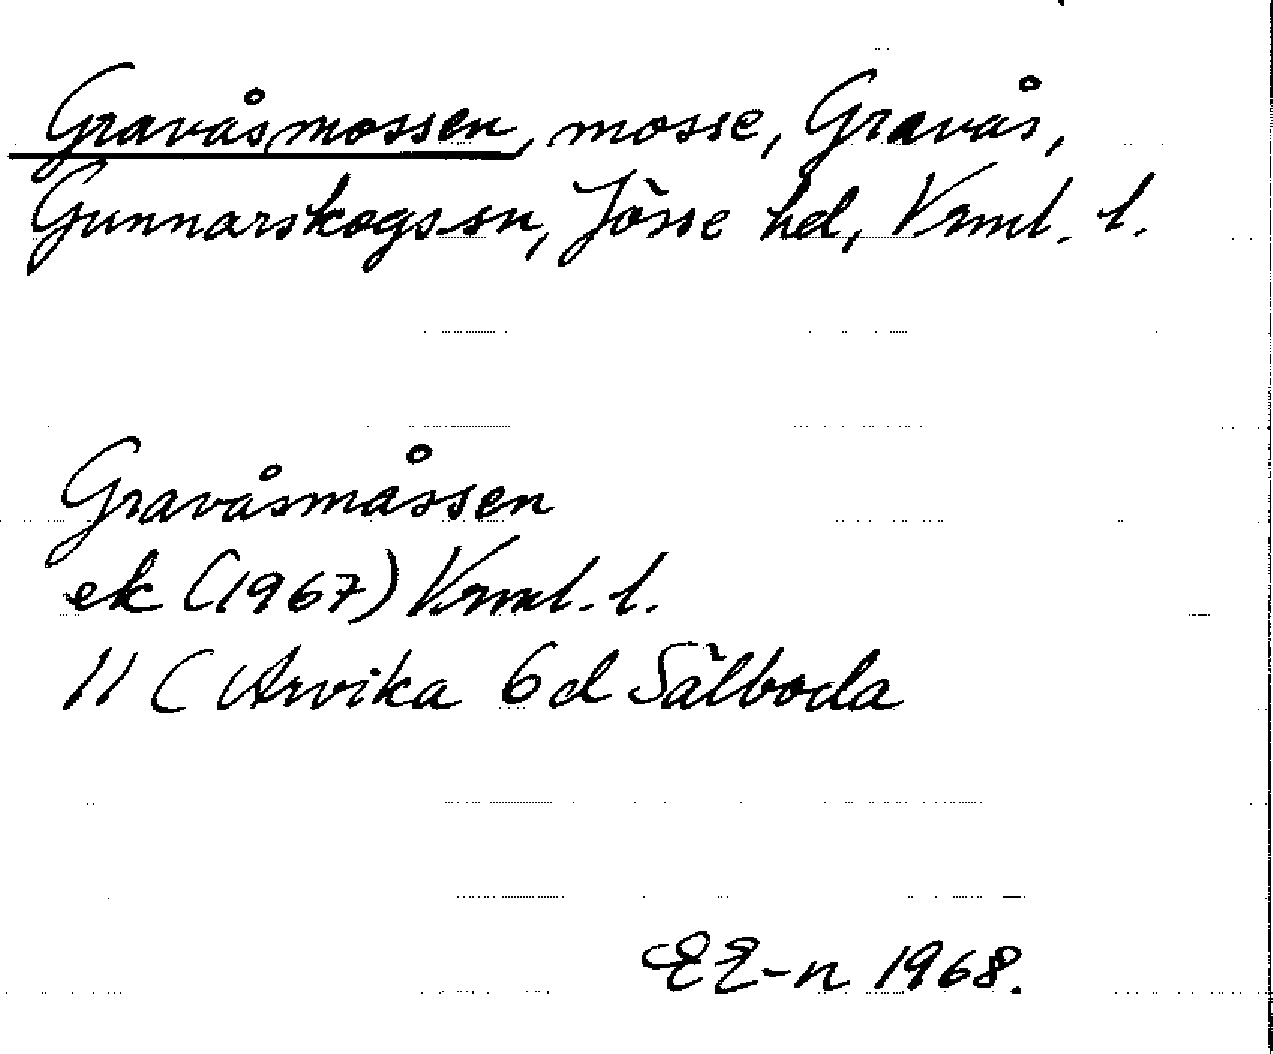 Gravåsmossen, mosse, Gravås,
Gunnarskogs sn, Jösse hd, Vrml. l.
Gravåsmåssen
ek (1967) Vrml. l.
11 C Arvika 6d Sälboda
EE-n 1968.